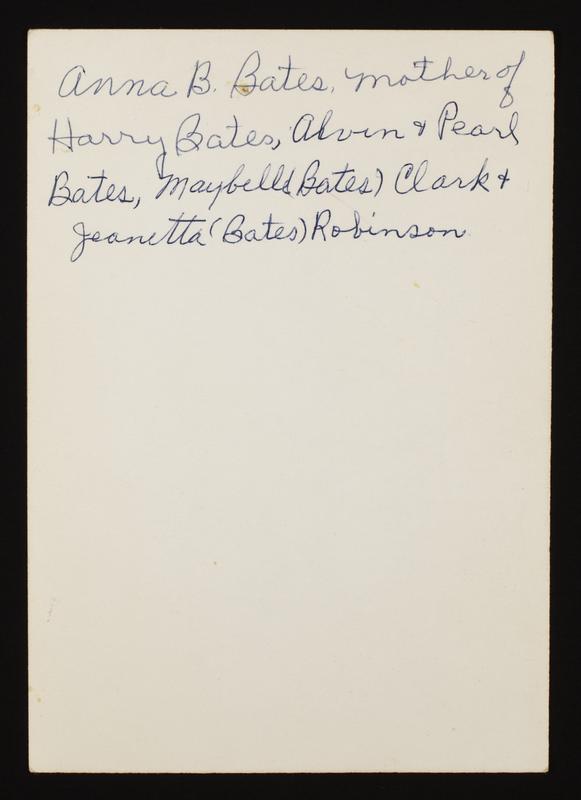 Anna B. Bates, mother of
Harry Bates, Alvin & Pearl
Bates, Maybelle (Bates) Clark &
Jeanetta (Bates) Robinson